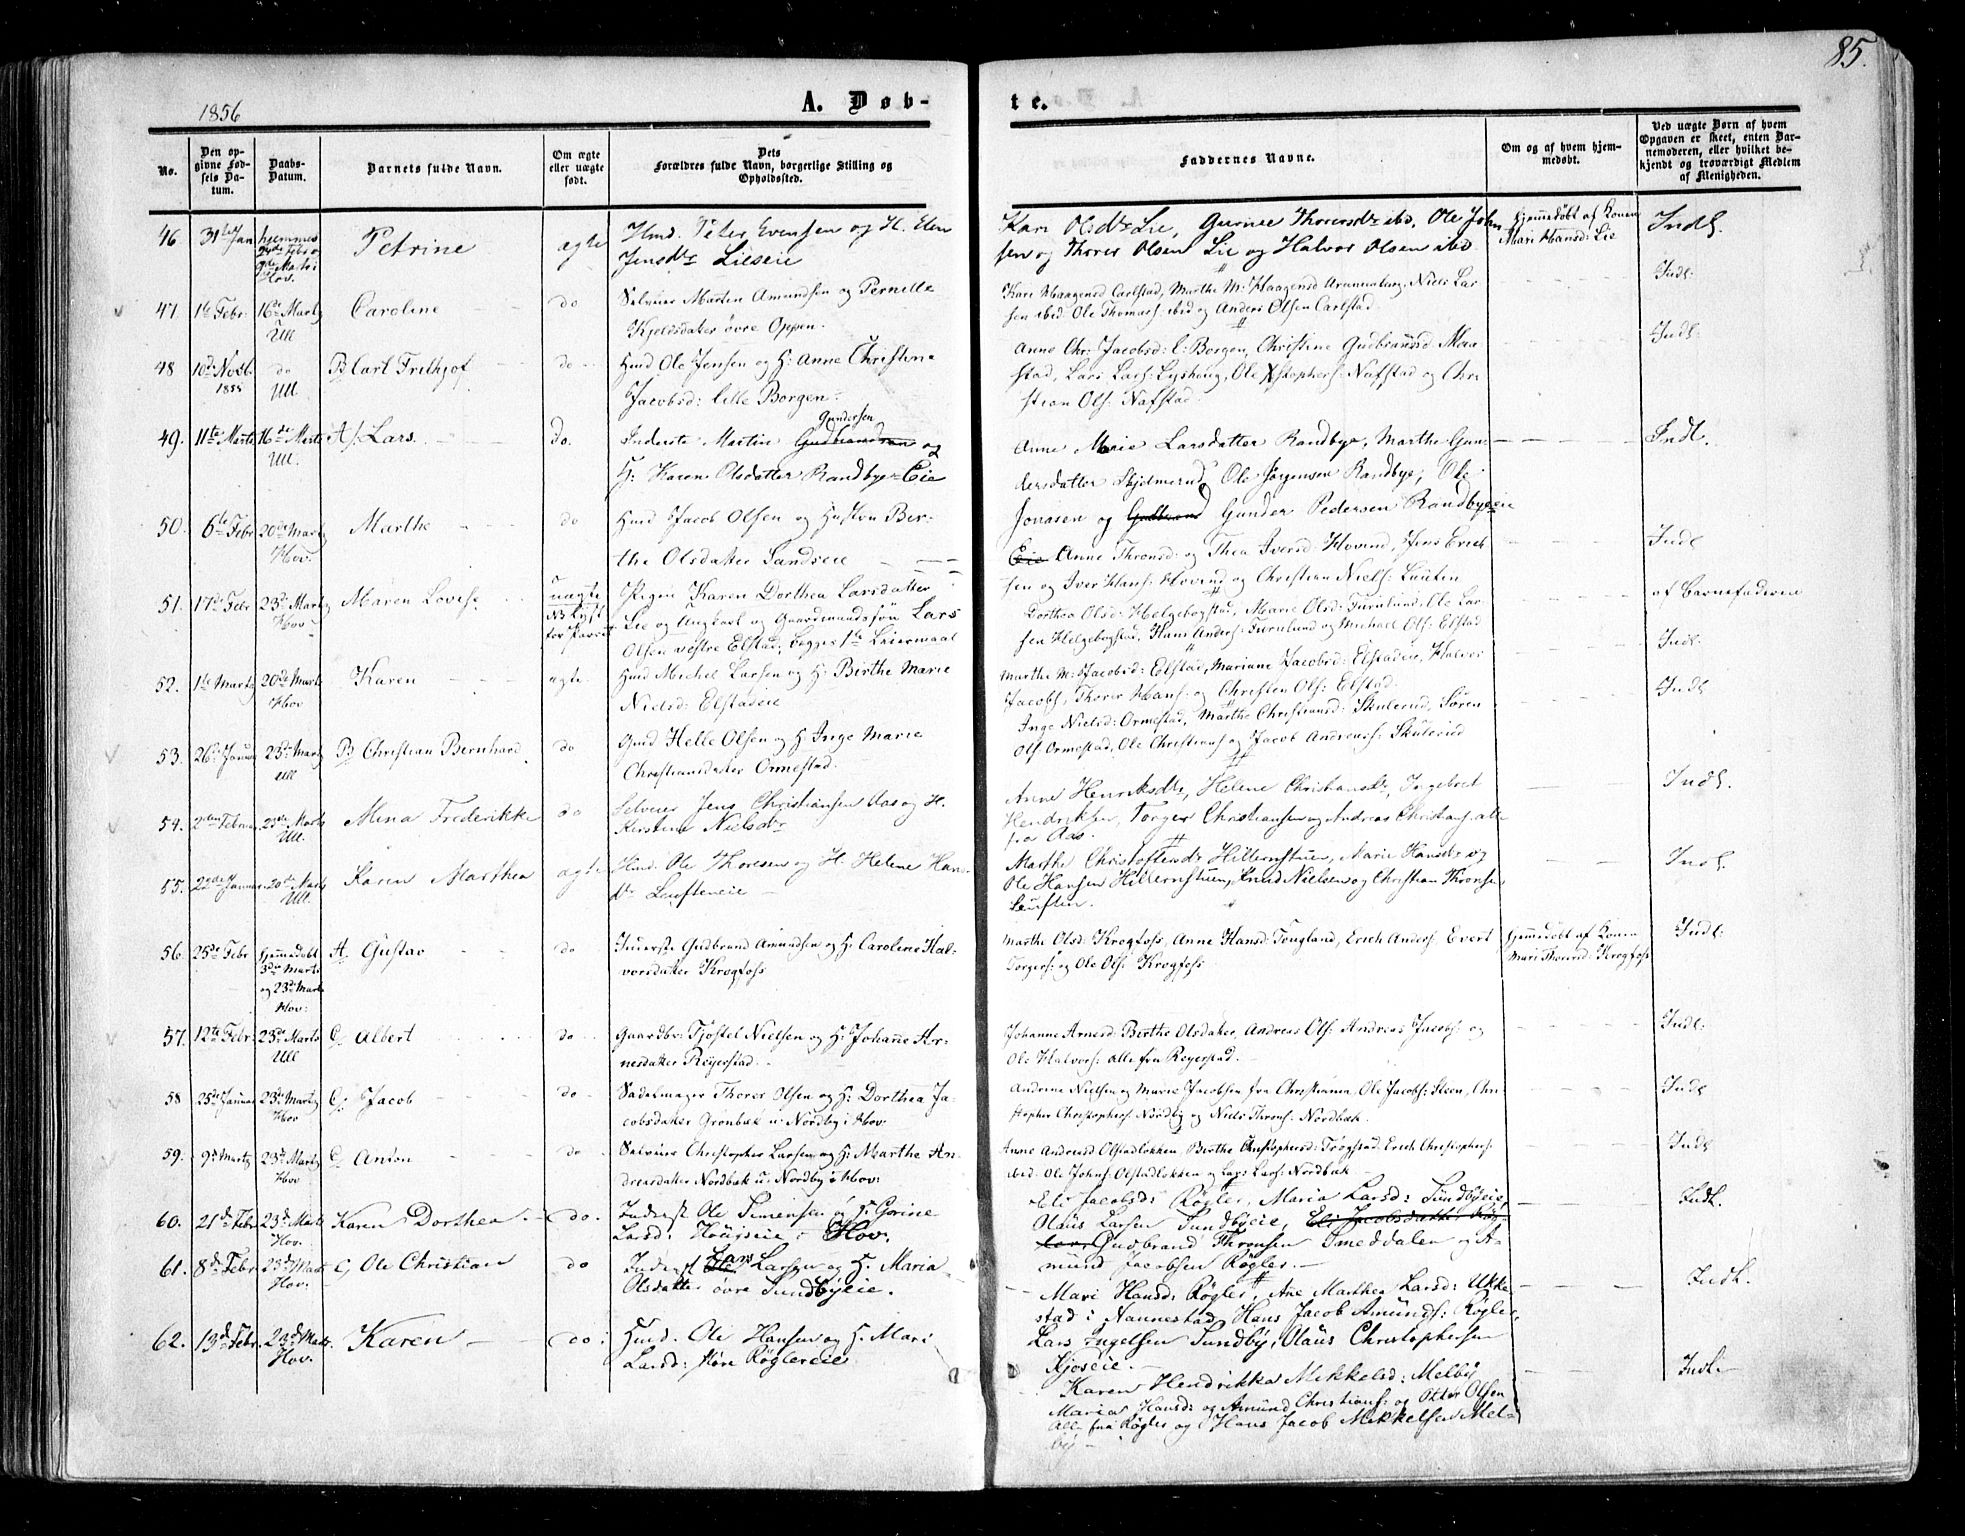 85.
1856
A. Døb-
te.
No.
Den op-
givne Fød-
sels Da-
tum.
Daabs-
Datum.
Barnets fulde Navn.
Om ægte
eller uægte
født.
Dets
Forældres fulde Navn, borgerlige Stilling og
Opholdssted.
Faddernes Navne.
Om og af hvem hjem-
medøbt.
Ved uægte Børn af hvem
Opgaven er skeet, enten Bar-
nemoderen, eller hvilket be-
kjendt og troværdigt Medlem
af Menigheden.
46. 31te Jan hjemme Petrine ægte Hmd. Peter Evensen og H. Elen
Hov. Jensdtr Lieseie
Kari Olsdtr Lie, Gurine Thorersdtr ibd, Ole Johan- hjemmedøbt af Konen Indl.
sen og Thorer Olsen Lie og Halvor Olsen ibd Mari Hansd: Lie
47. 1te Febr. 16de Marts Caroline do Selveier Morten Amundsen og Pernille
Ull Kjeldsdatter øvre Oppen.
Kari Haagensd Carlstad, Marthe M: Haagensd, Niels Lar- Indl:
sen ibid Ole Thomass: ibid og Anders Olsen Carlstad.
48 10de Novb. do B Carl Frithjof do Hmd Ole Jensen og H: Anne Christine
1855 Ull Jacobsd: Lille Borgen.
Anne Chr: Jacobsd: L: Borgen, Christine Gudbrandsd Maa- Indl:
stad, Lars Lars: Lyshoug, Ole Xstophers: Nafstad og Chri
stian Ols: Nafstad.
49. 11te Marts 16de Marts A/. Lars. Do. Inderste Martin Gudbrandsen Gundersen og
Ull. H: Karen Olsdatter Randbye-Eie
Anne Marie Larsdatter Randbye, Marthe Gun- Indl.
dersdatter Skjelmerud, Ole Jørgensen Randbye, Ole
Jonasen og Gudbrand Gunder Pedersen Randbyeeie
50. 6te Febr 20de Marts Marthe do Hmd Jacob Olsen og Hustru Ber-
Hov. the Olsdatter Sandseie
Eie Anne Thronsd: og Thea Iversd: Hovind, Jens Erick Indl
sen og Iver Hans: Hovind og Christian Niels: Lauten
51. 17de Febr 23de Marts Maren Lovise uægte Pigen Karen Dorthea Larsdatter
Hov Lie og Ungkarl og Gaardmandssøn Lars
Olsen vestre Elstad, begges 1te Leiermaal
Dorthea Olsd: Helgebogstad, Marie Olsd: Furulund, Ole Lar af Barnefaderen
sen Helgebogstad, Hans Anders: Furulund og Michael Ols: Elstad
52. 1te Marts 20de Marts Karen ægte Hmd Michel Larsen og H: Birthe Marie
Hov Nielsd: Elstadeie
Marthe M: Jacobsd: Elstad, Mariane Jacobsd: Elstadeie, Halvor Indl:
Jacobs, Thorer Hans: og Christen Ols: Elstad.
53. 26de Januar 23de Marts B Christian Bernhard do Gmd Helle Olsen og H: Inge Marie
Ull Christiansdatter Ormestad.
Inge Nielsd: Ormestad, Marthe Christiansd: Skulerud, Søren Indl
Ols: Ormestad, Ole Christians: og Jacob Andreas: Skulerud
54. 2den Februar 23de Marts Mina Frederikke do Selveier Jens Christiansen Aas og H.
Ull. Kirstine Nielsdtr
Anne Henriksdtr, Helene Christiansdtr, Ingebret Indl.
Hendriksen, Torger Christiansen og Andreas Christians: alle
fra Aas.
55. 22de Januar 20de Marts Karen Marthea ægte Hmd. Ole Thoresen og H. Helene Han-
Ull. dtr Laufteneie
Marthe Christofersdtr Hillernstuen, Marie Hansdtr og Indl.
Ole Hansen Hillernstuen, Knud Nielsen og Christian Thronsen
Lauften.
56. 25de Febr hjemmedøbt A. Gustav do Inderste Gudbrand Amundsen og H: Caroline Hal-
3die Marts vorsdatter Krogfoss
og 23de Marts
Hov:
Marthe Olsd: Krogfoss, Anne Hansd: Tougland, Erich Anders: Evert hjemmedøbt af Konen Indl:
Torgers: og Ole Ols: Krogfoss Mari Thorersd: Krogfoss
57. 12te Febr 23de Marts C. Albert do Gaardbr: Tjøstel Nielsen og H: Johanne Ar-
Ull nesdatter Reyerstad.
Johanne Arnesd: Birthe Olsdatter, Andreas Ols: Andreas Jacobs: og Indl:
Ole Halvors: alle fra Reyerstad.
58 25de Januar 23de Marts C. Jacob do Sadelmager Thorer Olsen og H: Dorthea Ja-
Hov cobsdatter Grønbæk u: Nordby i Hov:
Andrine Nielsen og Marie Jacobsen fra Christiania, Ole Jacobs: Steen, Chri- Indl
stopher Christophers: Nordby og Niels Throns: Nordbæk.
59. 9de Marts 23de Marts C. Anton do Selveier Christopher Larsen og H: Marthe An
Hov dreasdatter Nordbæk u: Nordby i Hov:
Anne Andreasd Olstadløkken, Birthe Christophersd: Trøgstad: Erich Christophers: Indl
ibid. Ole Johns: Olstadløkken og Lars Lars: Nordbæk
60. 21de Febr 23de Marts Karen Dorthea do. Inderst Ole Simensen og H: Gorine
Hov. Larsd: Høugseie i Hov.
Eli Jacobsd: Røgler, Maria Larsd: Sundbyeie, Indl.
Olaus Larsen Sundbyeie, Eli Jacobsdatter Røg-
ler Gudbrand Thronsen Smeddalen og A-
mund Jacobsen Røgler.
61. 8de Febr 23de Marts C, Ole Christian do Inderst Lars Larsen og H. Maria
Hov. Olsdatter øvre Sundbyeie.
Mari Hansd: Røgler, Ane Marthea Larsd: Ukke- Indl.
stad i Nannestad, Hans Jacob Amunds: Røgler,
Lars Engelsen Sundby, Olaus Christophersen
Kjoseie.
62. 13de Febr. 23de Marts. Karen do: Hmd. Ole Hansen og H. Mari
Hov. Larsd: store Røglereie
Karen Hendrikka Mikkelsd: Melby Indl.
Maria Hansd: og Amund Christians: og Otter Olsen
Alle fra Røgler og Hans Jacob Mikkelsen Mel-
by